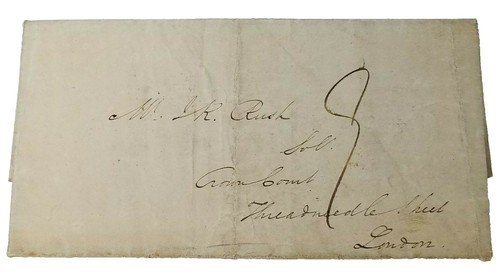 Mr. J K. Rush
Solr.
Crown Court
Threadneedle Street
London.
8